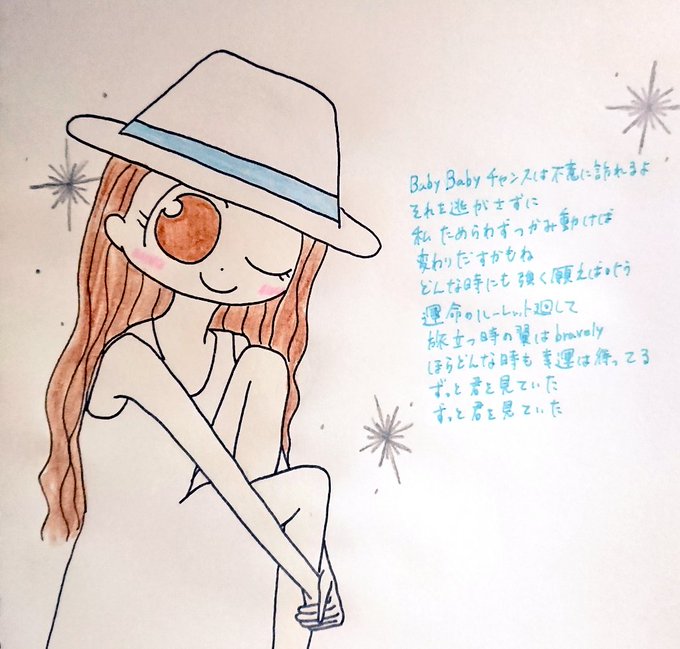 Baby Baby チャンスは不意に訪れるよ
それを逃がさずに
私 ためらわずつかみ動けば
変わりだすかもね
どんな時にも 強く願えば
運命のルーレット廻して
旅立つ時の翼は bravely
ほらどんな時も 幸運は待ってる
ずっと君を見ていた
ずっと君を見ていた